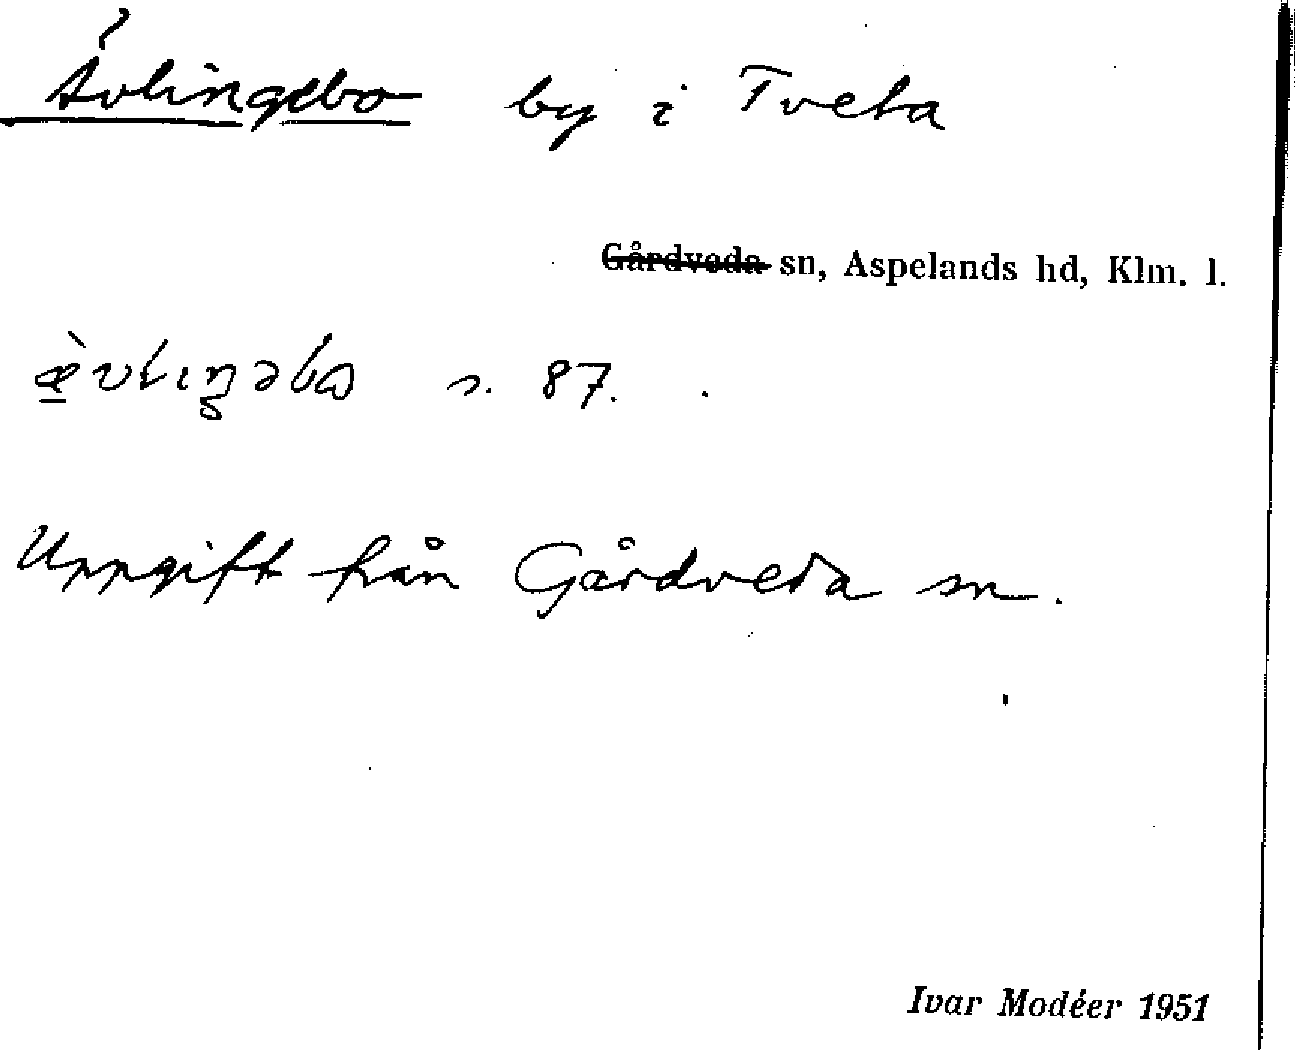 Ävlingebo by i Tveta
Gårdveda sn, Aspelands hd, Klm. l.
s. 87.
Uppgift från Gårdveda sn.
Ivar Modéer 1951